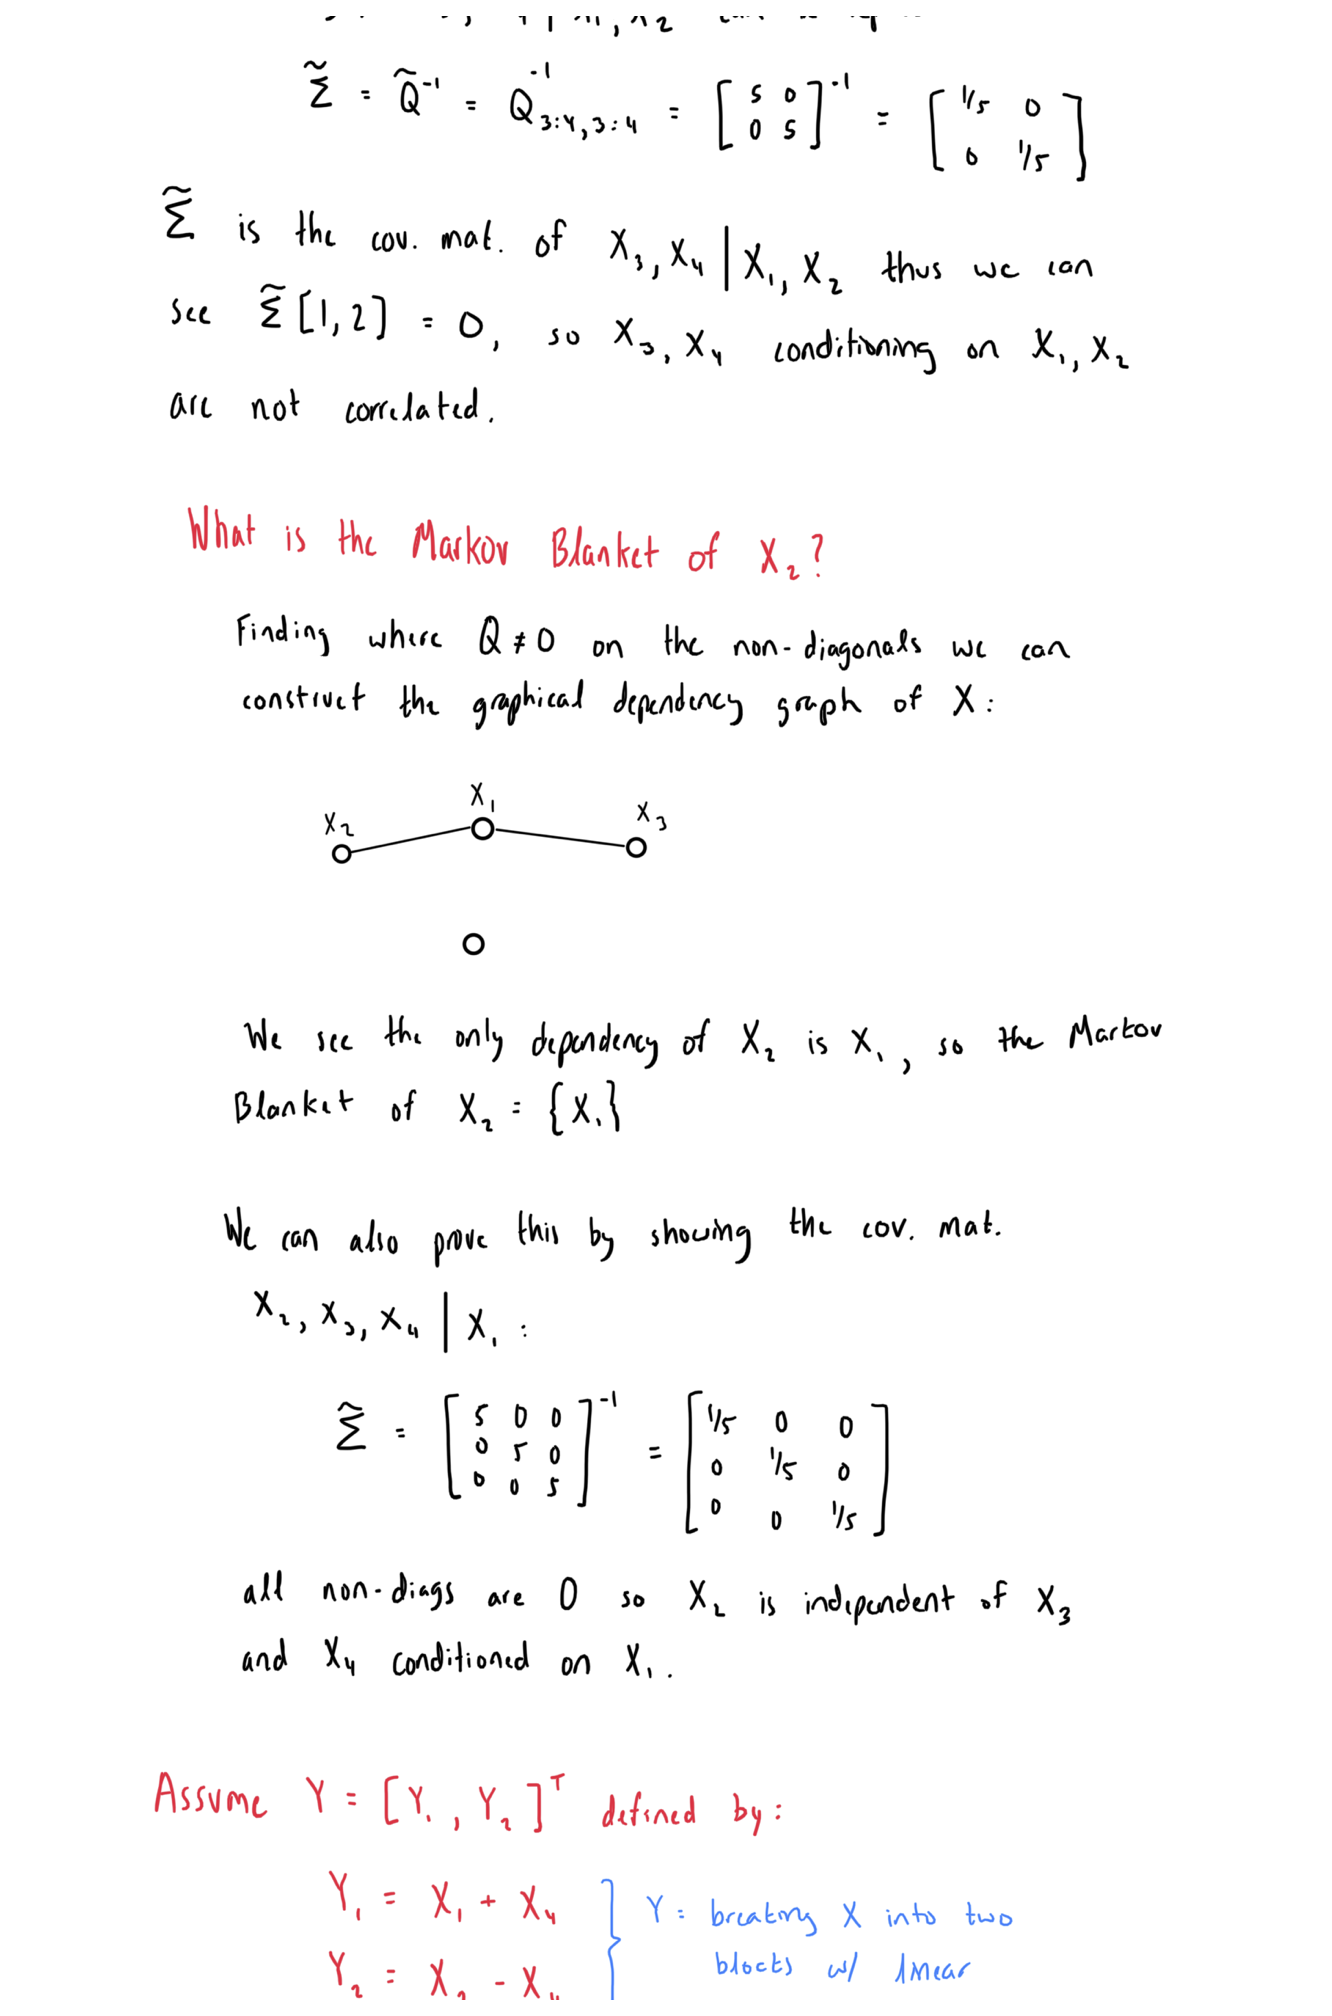 Σ̃ = Q̃⁻¹ = Q⁻¹₃:₄,₃:₄ = [5 0; 0 5]⁻¹ = [1/5 0; 0 1/5]
Σ̃ is the cov. mat. of X₃, X₄ | X₁, X₂ thus we can
see Σ̃[1,2] = 0, so X₃, X₄ conditioning on X₁, X₂
are not correlated.
What is the Markov Blanket of X₂?
Finding where Q ≠ 0 on the non-diagonals we can
construct the graphical dependency graph of X:
X₂ X₁ X₃
We see the only dependency of X₂ is X₁, so the Markov
Blanket of X₂ = {X₁}
We can also prove this by showing the cov. mat.
X₂, X₃, X₄ | X₁ :
Σ̃ = [5 0 0; 0 5 0; 0 0 5]⁻¹ = [1/5 0 0; 0 1/5 0; 0 0 1/5]
all non-diags are 0 so X₂ is independent of X₃
and X₄ conditioned on X₁.
Assume Y = [Y₁, Y₂]ᵀ defined by:
Y₁ = X₁ + X₄ } Y = breaking X into two
Y₂ = X₂ - X₄ blocks w/ linear